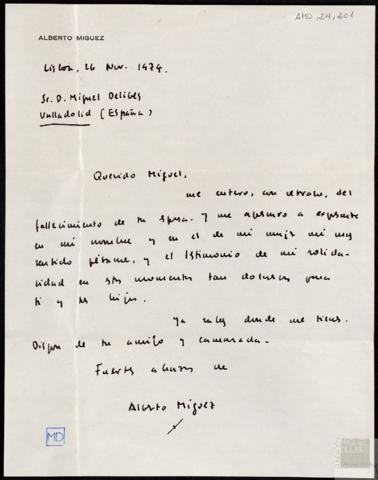 ALBERTO MIGUEZ
AMD, 24, 201
Lisboa, 26 Nov. 1974.
Sr. D. Miguel Delibes
Valladolid (España)
Querido Miguel,
me entero, con retraso, del
fallecimiento de tu esposa. Y me apresuro a expresarte
en mi nombre y en el de mi mujer mi más
sentido pésame, y el testimonio de mi solida-
ridad en estos momentos tan dolorosos para
ti y tus hijos.
Ya sabes donde me tienes.
Dispon de tu amigo y camarada.
Fuertes abrazos de
Alberto Míguez
MD